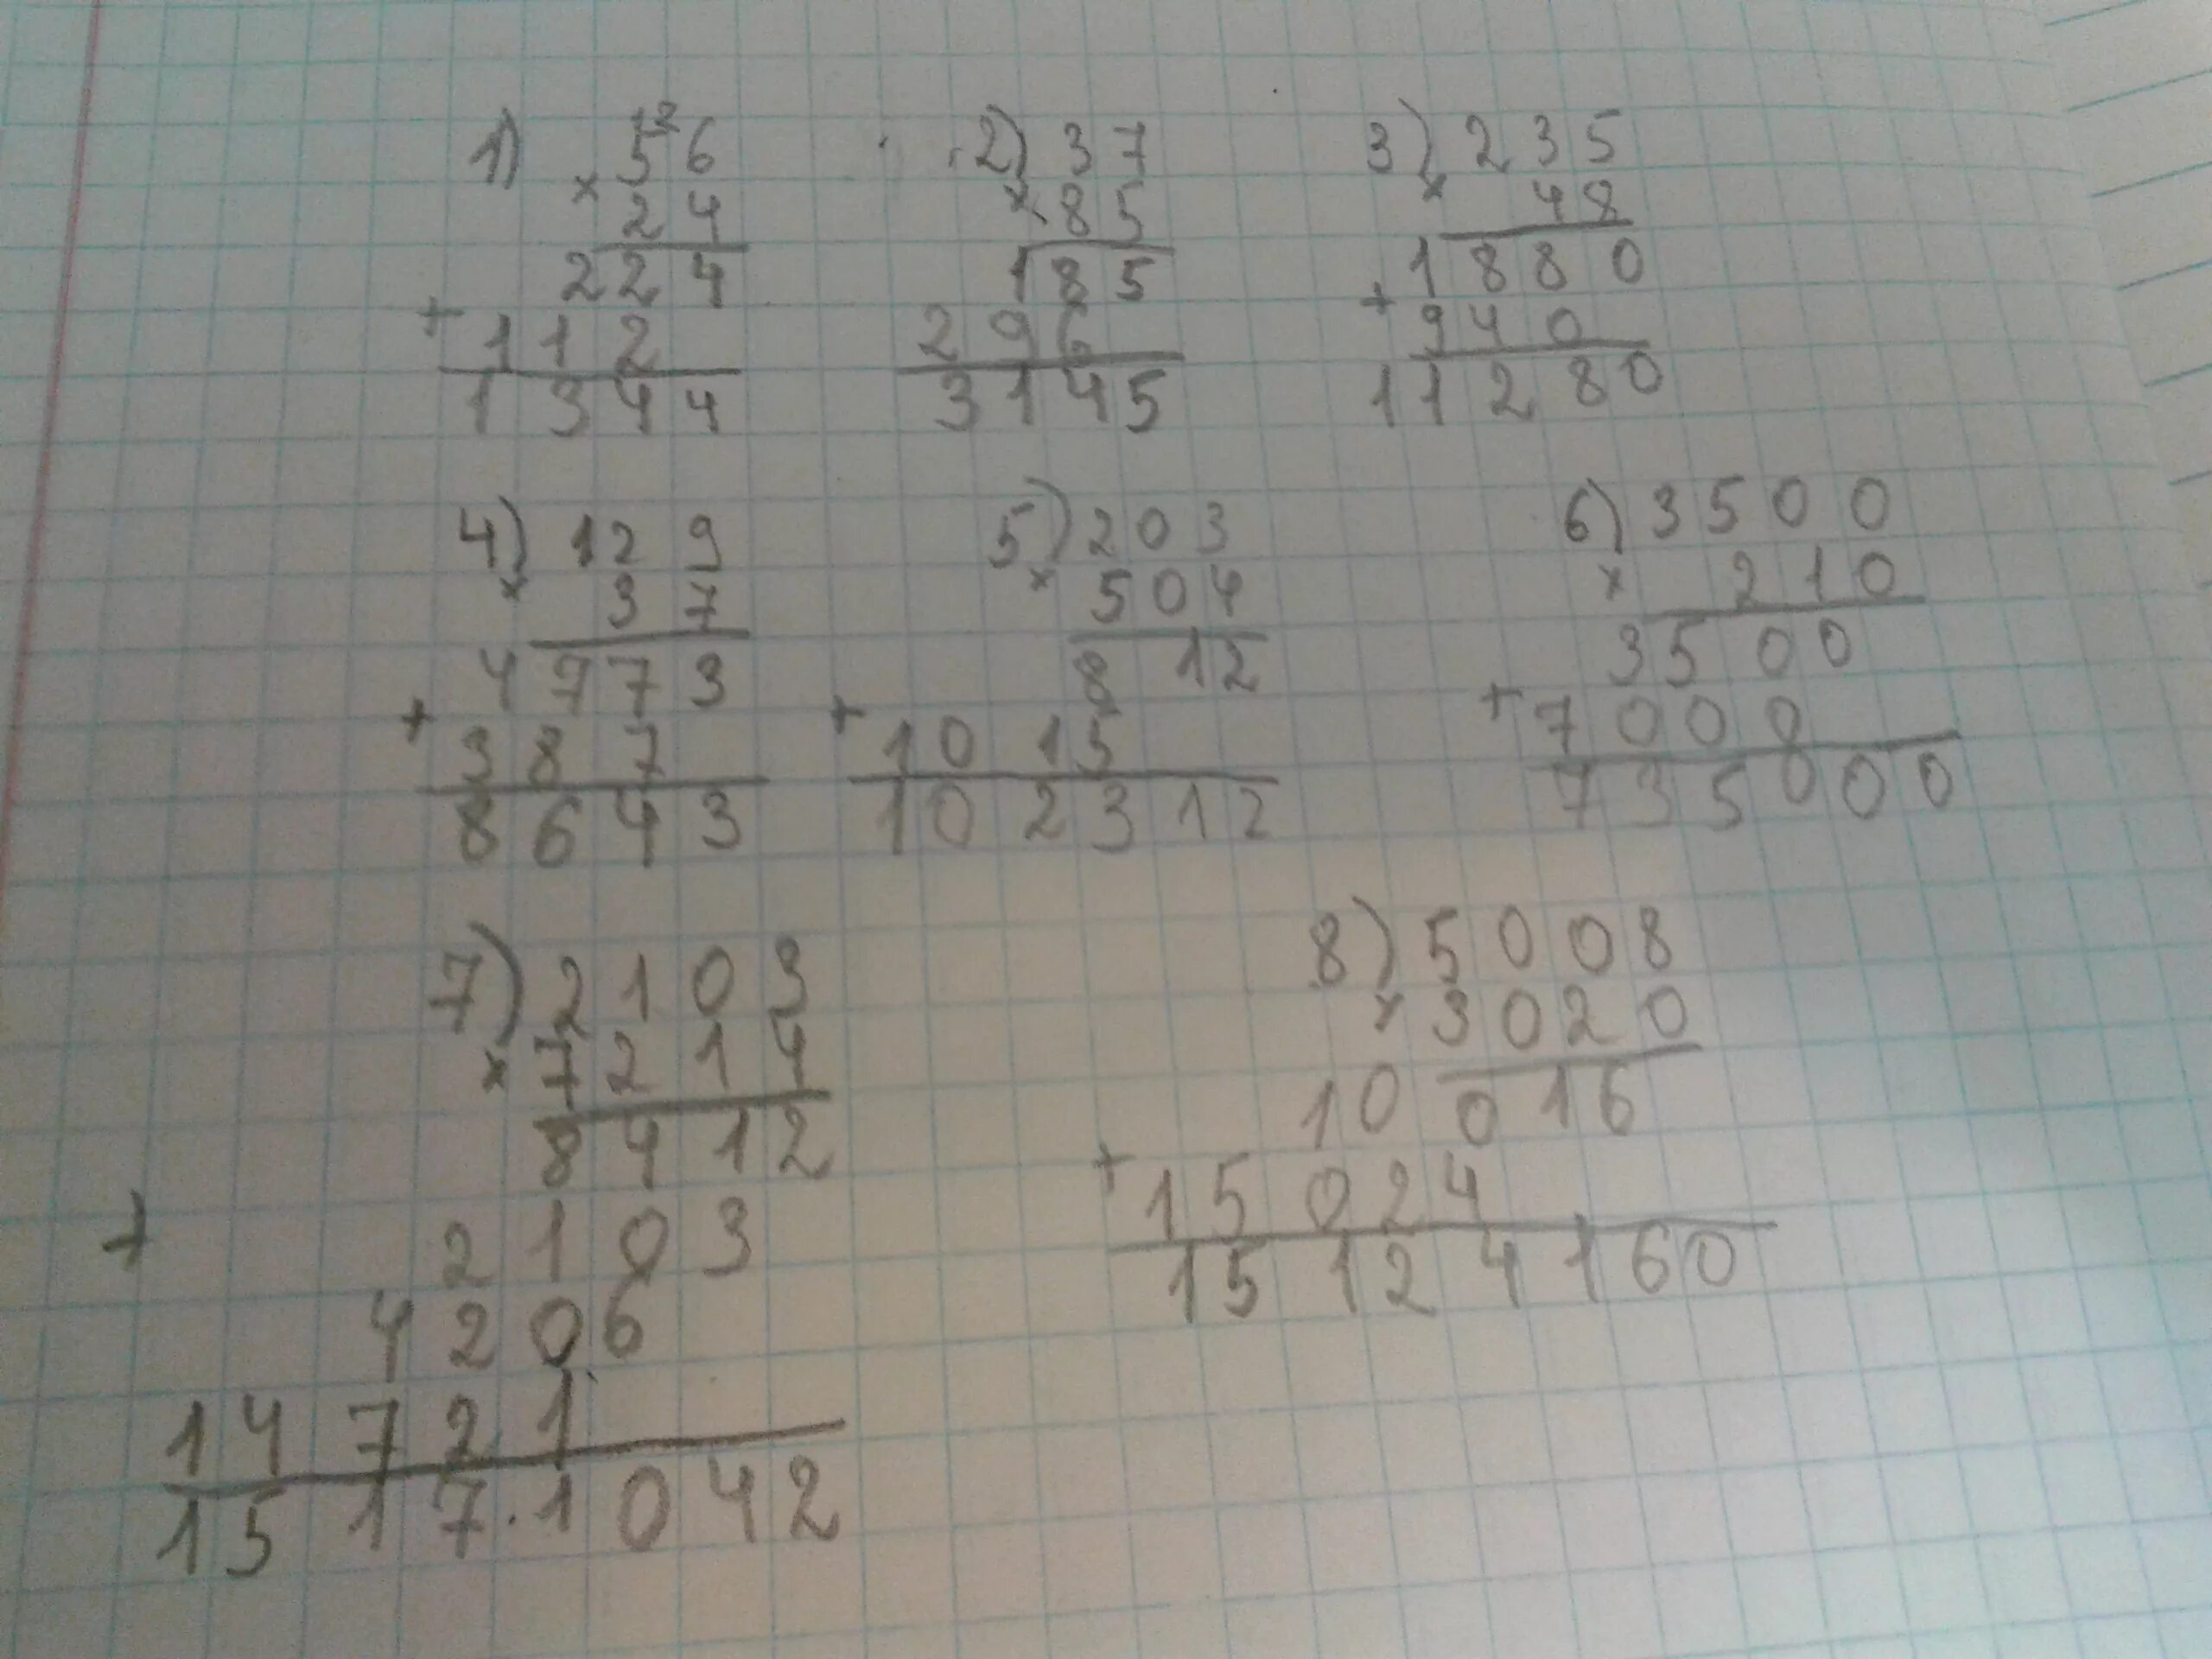 1) 12
56
× 24
224
+ 112
1344
2) 37
× 85
185
296
3145
3) 235
× 48
1880
+ 940
11280
4) 129
× 37
4773
+ 387
8643
5) 203
× 504
812
+ 1015
102312
6) 3500
× 210
3500
+ 7000
735000
7) 2103
× 7214
8412
+ 2103
4206
14721
1517.1042
8) 5008
× 3020
10016
+ 15024
15124160